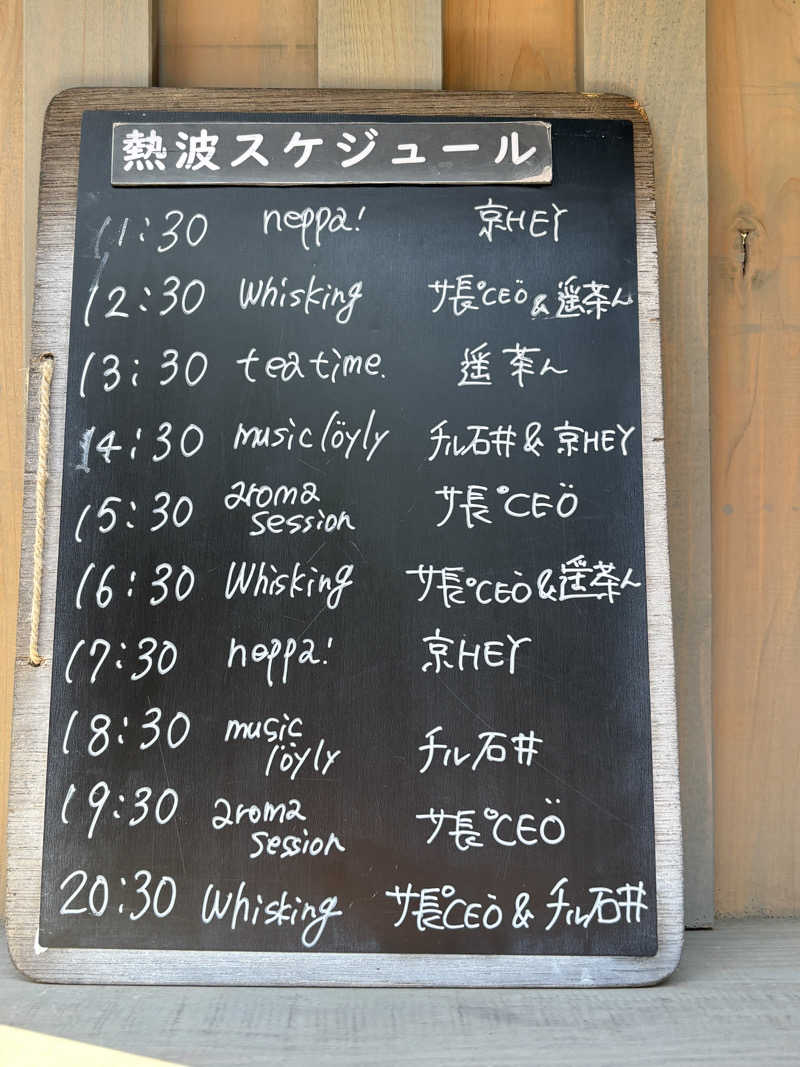 熱波スケジュール
11:30 neppa! 京HEY
12:30 Whisking サ長℃EÖ & 遥茶ん
13:30 teatime. 遥茶ん
14:30 music löyly チル石井 & 京HEY
15:30 aroma session サ長℃EÖ
16:30 Whisking サ長℃EÖ & 遥茶ん
17:30 neppa! 京HEY
18:30 music löyly チル石井
19:30 aroma session サ長℃EÖ
20:30 Whisking サ長℃EÖ & チル石井